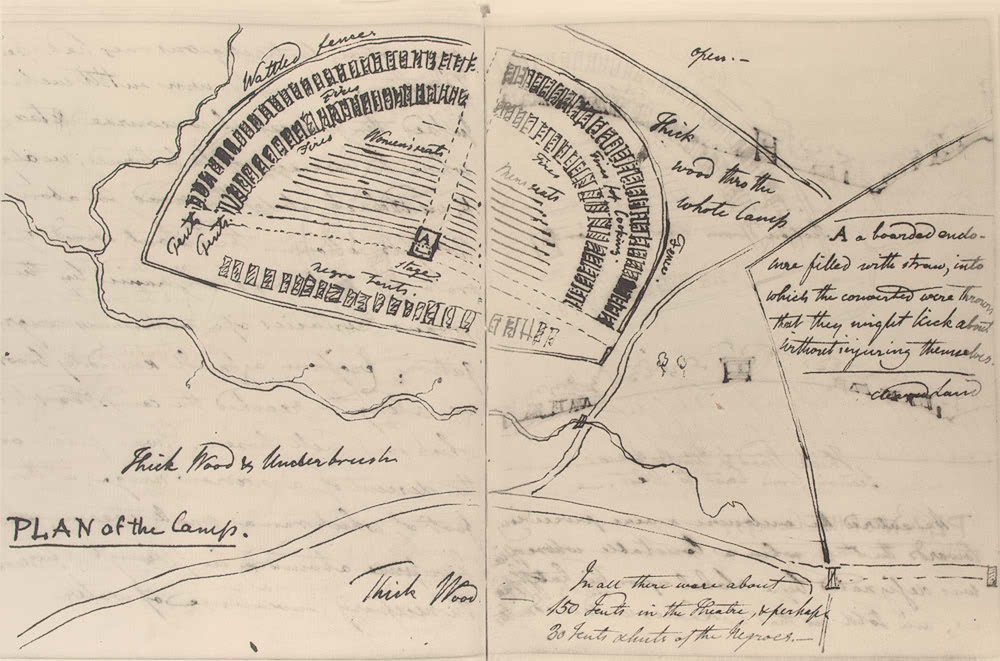 Wattled fence
Fires
Fires
Womens seats
Tents
Tents
A
Stage
Negro Tents.
Mens seats
Fires
Fires for Cooking
Fence
open. —
Thick
wood thro the
whole Camp
A a boarded enclo-
sure filled with straw, into
which the converted were thrown
that they might kick about
without injuring themselves.
cleared Land
Thick Wood & Underbrush
PLAN of the Camp.
Thick Wood
In all there were about
150 Tents in the Theatre, & perhaps
30 Tents & huts of the Negroes. —